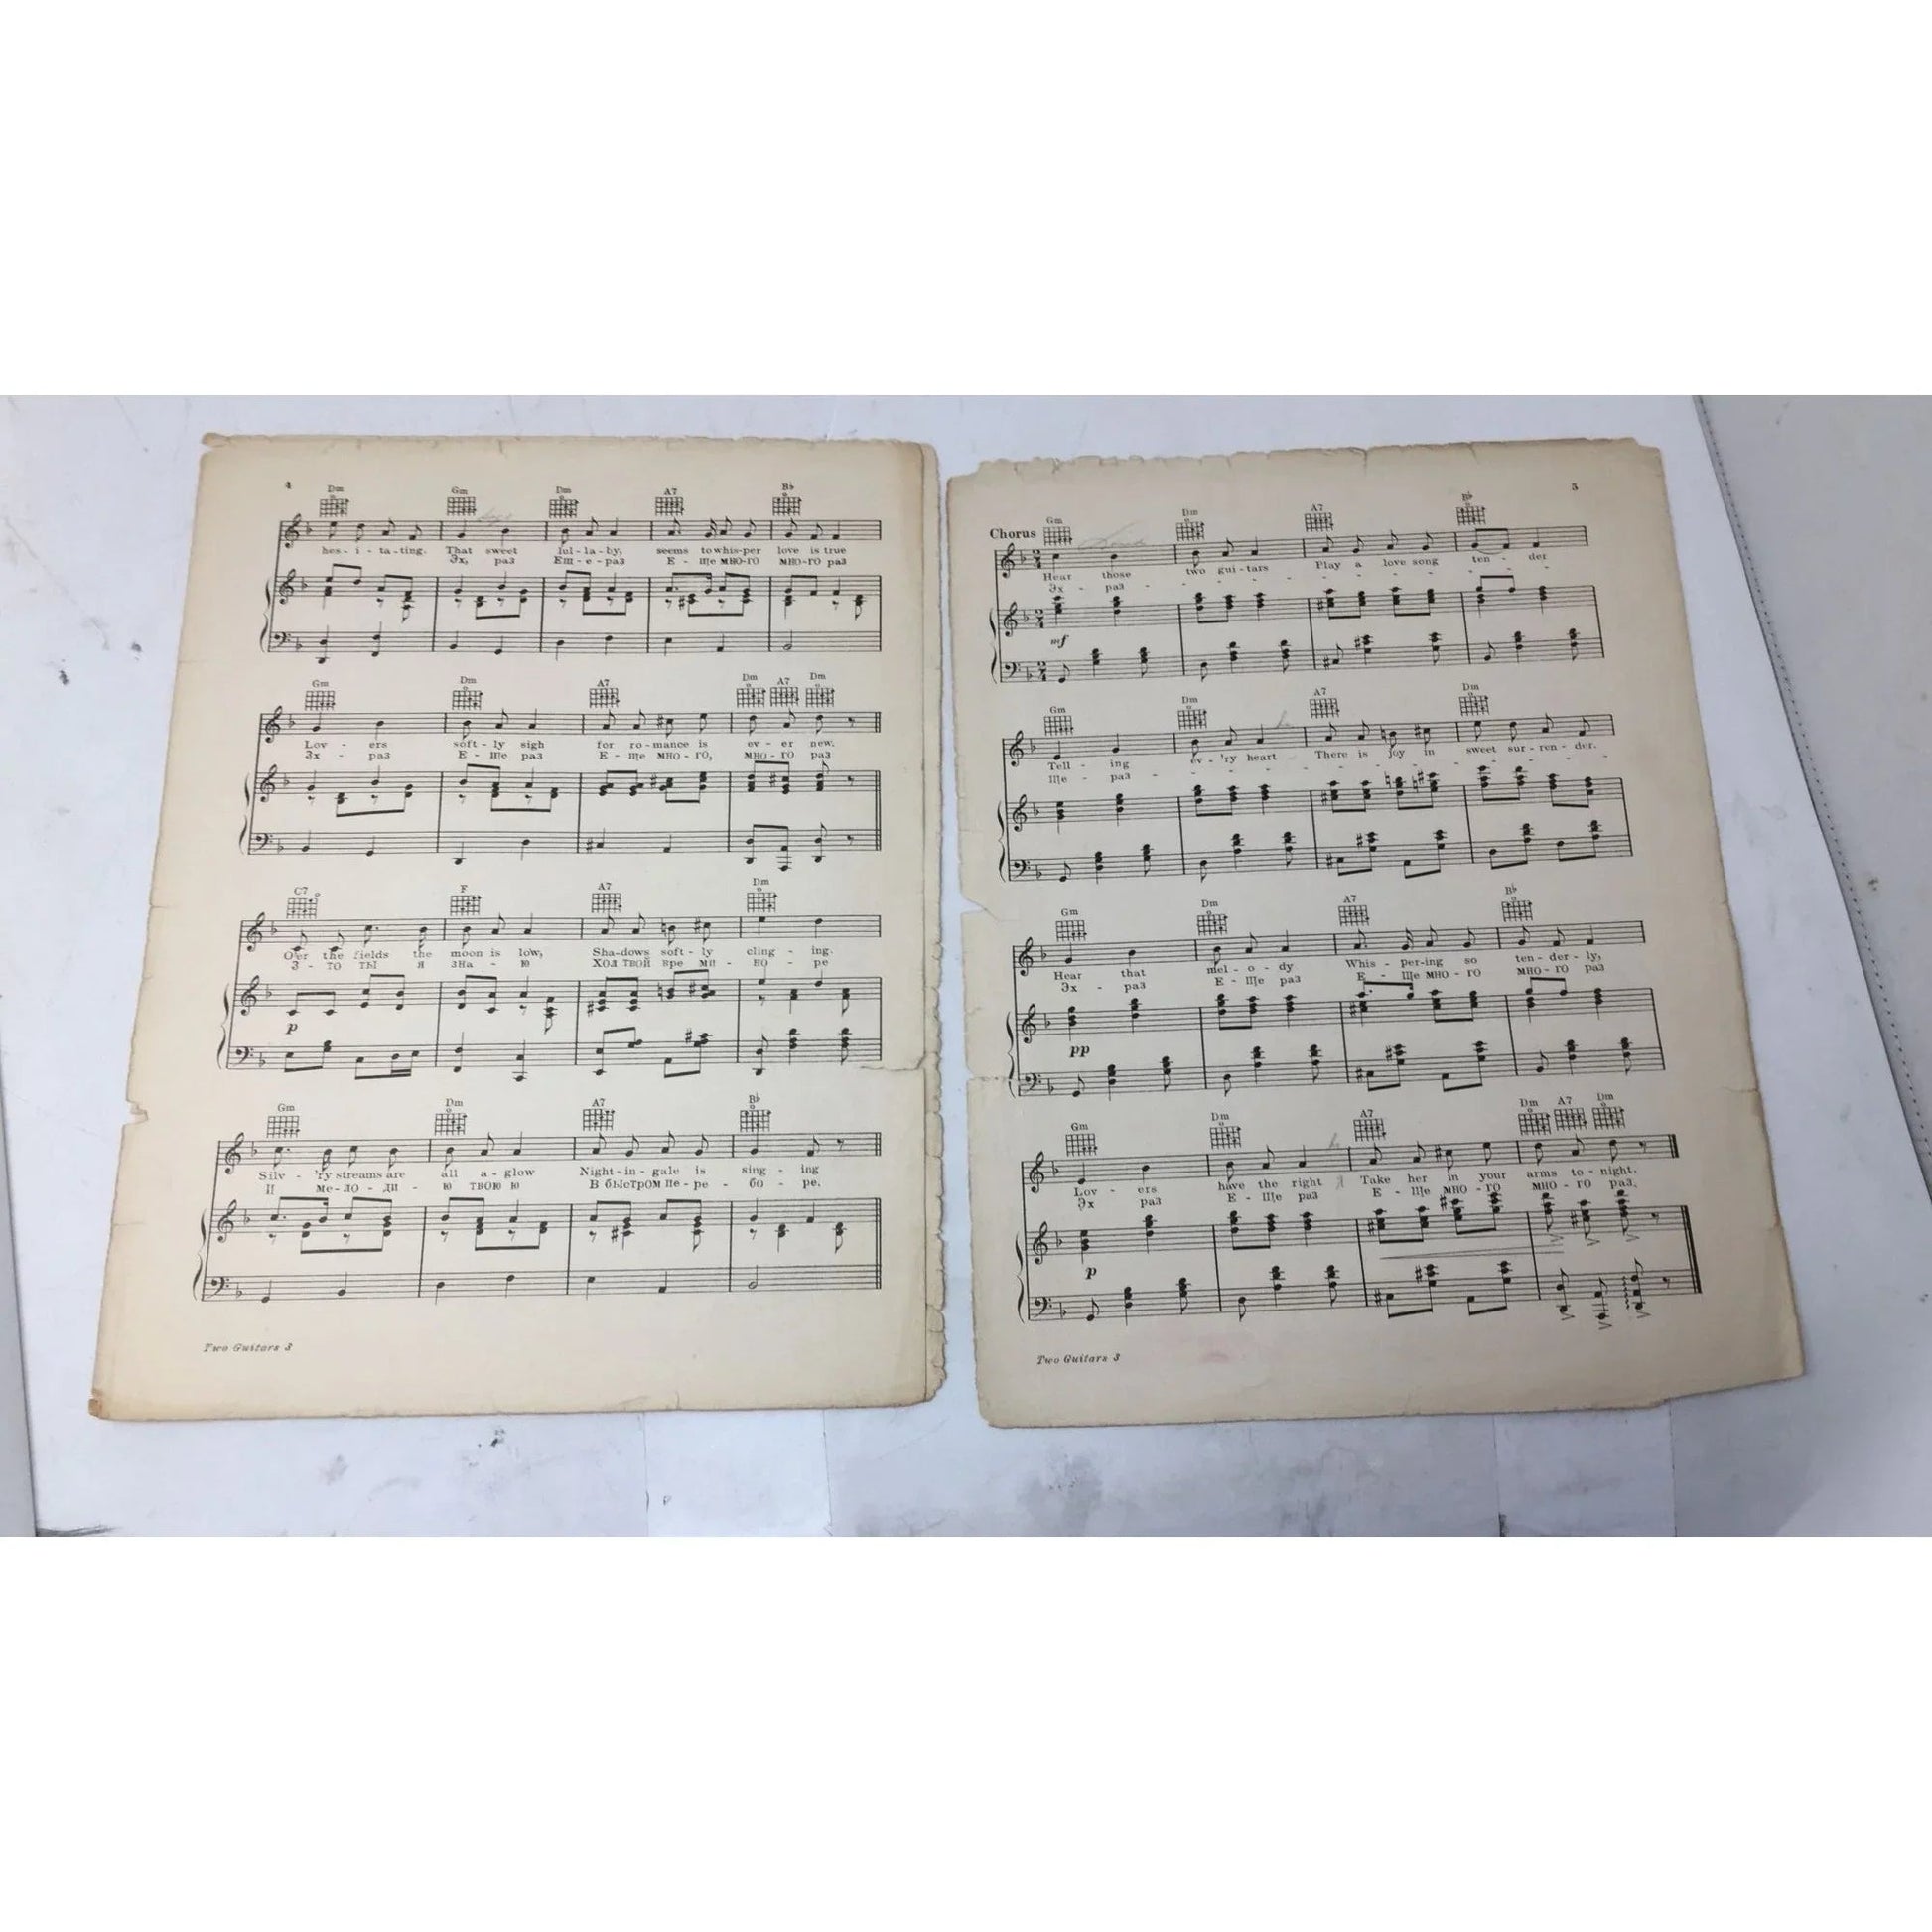 4
Dm Gm Dm A7 B♭
hes - i - ta - ting. That sweet lul - la - by, seems to whis-per love is true
Эх, раз Еш - е - раз Е - ще мно-го мно-го раз
Gm Dm A7 Dm A7 Dm
Lov - ers soft - ly sigh for ro - mance is ev - er new.
Эх - раз Е - ще раз Е - ще мно - го, мно - го раз
C7 F A7 Dm
O'er the fields the moon is low, Sha-dows soft - ly cling - ing.
Э - то ты я зна - ю ход твой вре ми - но - ре
p
Gm Dm A7 B♭
Silv - 'ry streams are all a - glow Night - in - gale is sing - ing
И ме - ло - ди - ю твою ю В быстром пе - ре - бо - ре.
Two Guitars 3
5
Gm Dm A7 B♭
Chorus
Hear those two gui - tars Play a love song ten - der
Эх - раз
mf
Gm Dm A7 Dm
Tell - ing ev - 'ry heart There is joy in sweet sur - ren - der.
Ще - раз
Gm Dm A7 B♭
Hear that mel - o - dy Whis - per-ing so ten - der - ly,
Эх - раз Е - ще раз Е - ще мно - го мно - го раз
pp
Gm Dm A7 Dm A7 Dm
Lov - ers have the right Take her in your arms to - night.
Эх раз Е - ще раз Е - ще мно - го мно - го раз.
p
Two Guitars 3